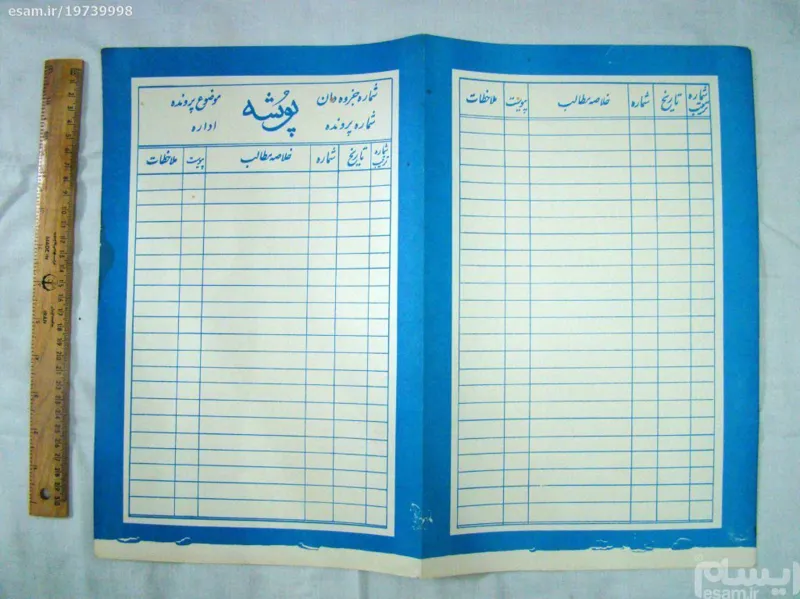 esam.ir/19739998
شماره جزوه دان پوشه موضوع پرونده
شماره پرونده اداره
شماره ترتیب تاریخ شماره خلاصه مطالب پیوست ملاحظات
شماره ترتیب تاریخ شماره خلاصه مطالب پیوست ملاحظات
ایسام
esam.ir